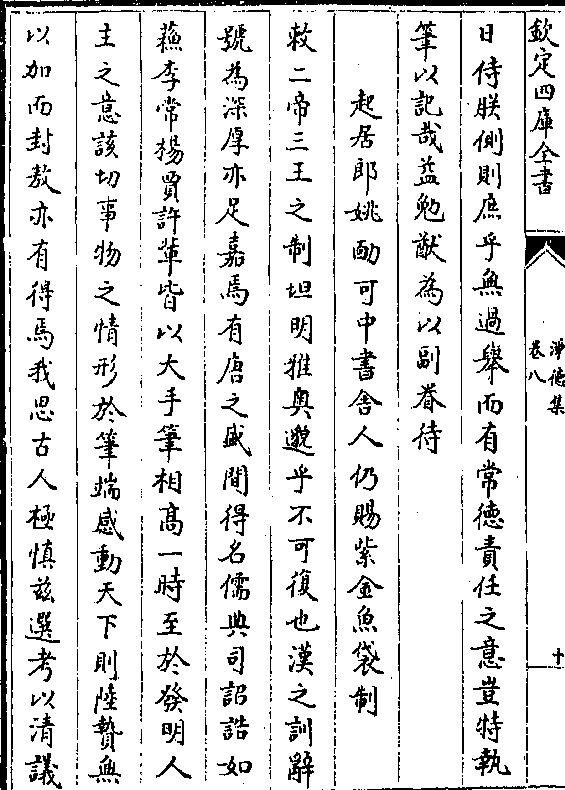 欽定四庫全書
淨德集
卷八
十
日侍朕側則庶乎無過舉而有常德責任之意豈特執
筆以記哉益勉猷為以副眷待
起居郎姚勔可中書舍人仍賜紫金魚袋制
敕二帝三王之制坦明雅奥邈乎不可復也漢之訓辭
號為深厚亦足嘉焉有唐之盛間得名儒典司詔誥如
蘓李常楊賈許軰皆以大手筆相高一時至於發明人
主之意該切事物之情形於筆端感動天下則陸贄無
以加而封敖亦有得焉我思古人極慎兹選考以清議